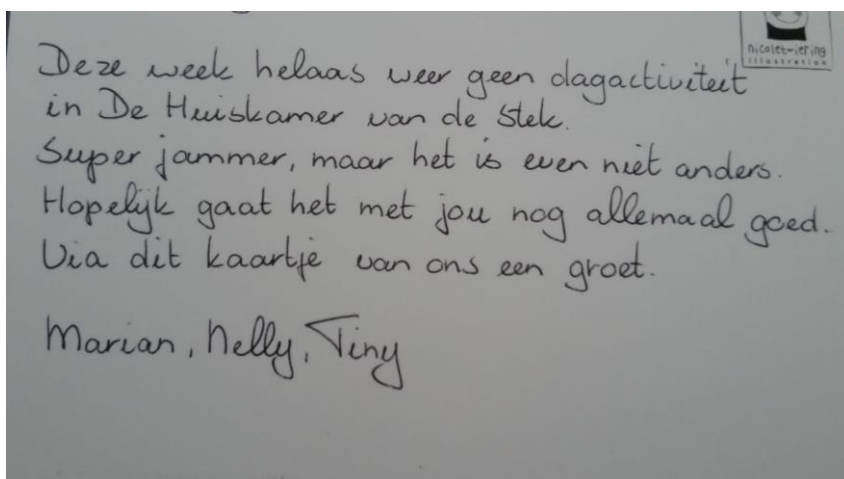 nicolet-iering
illustration
Deze week helaas weer geen dagactiviteit
in De Huiskamer van de Stek.
Super jammer, maar het is even niet anders.
Hopelijk gaat het met jou nog allemaal goed.
Via dit kaartje van ons een groet.
Marian, Nelly, Tiny